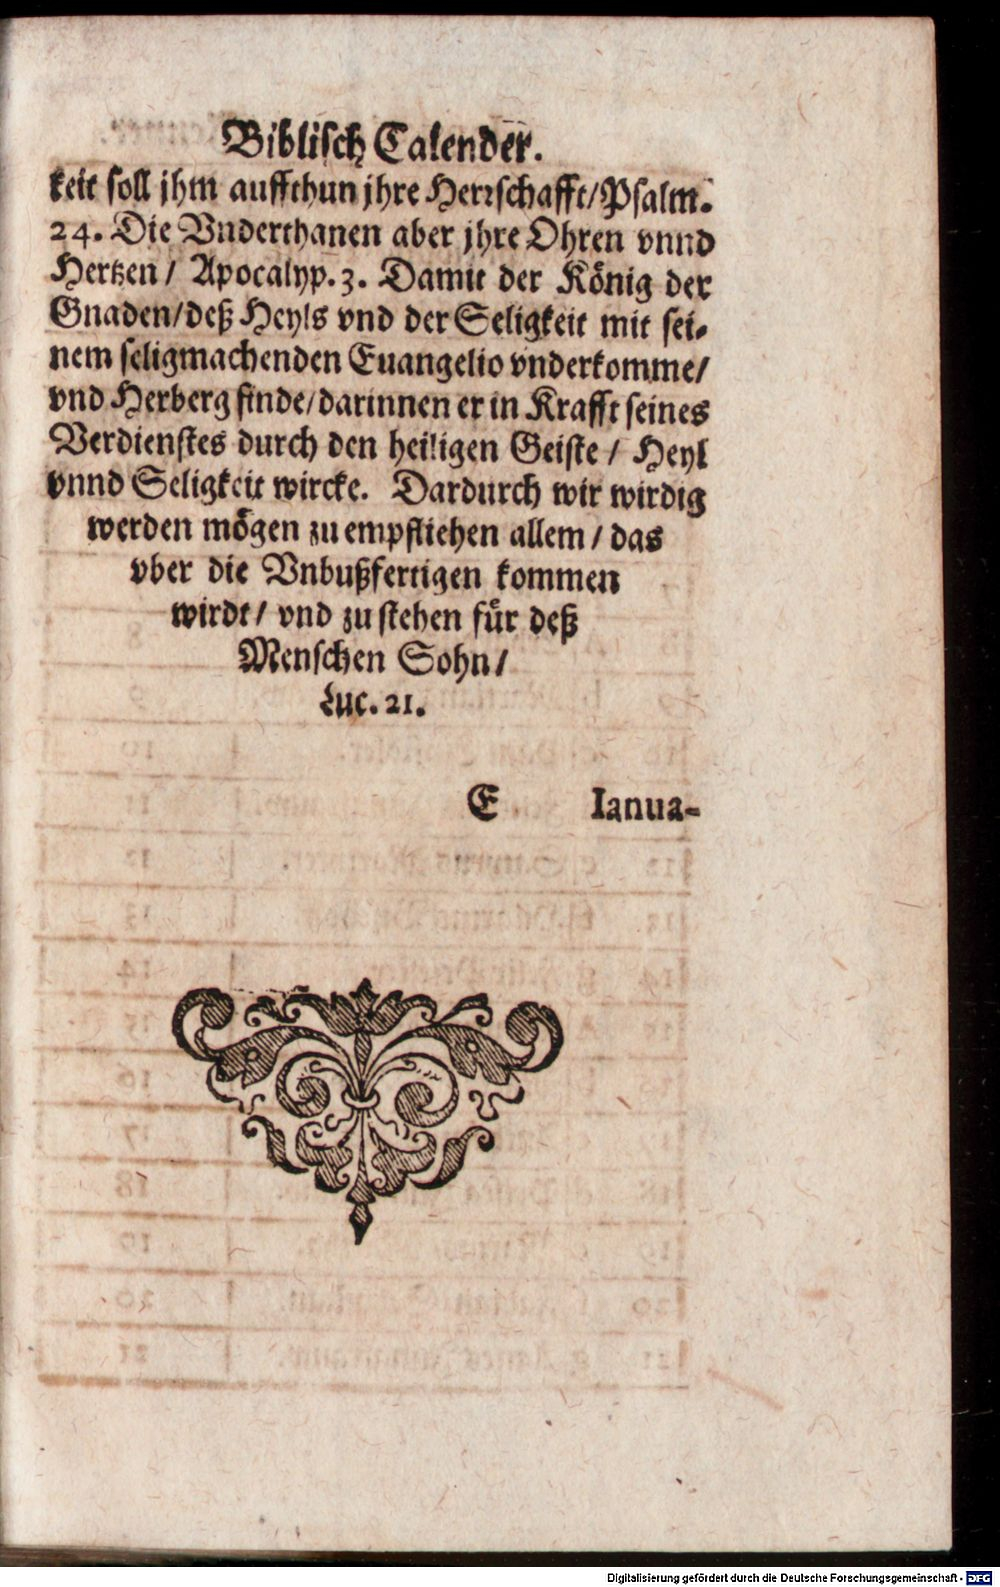 Biblisch Calender.
keit soll jhm auffthun jhre Herrschafft/Psalm.
24. Die Vnderthanen aber jhre Ohren vnnd
Hertzen/ Apocalyp. 3. Damit der König der
Gnaden/deß Heyls vnd der Seligkeit mit sei-
nem seligmachenden Euangelio vnderkomme/
vnd Herberg finde/darinnen er in Krafft seines
Verdienstes durch den heiligen Geiste / Heyl
vnnd Seligkeit wircke. Dardurch wir wirdig
werden mögen zu empfliehen allem / das
vber die Vnbußfertigen kommen
wirdt/ vnd zu stehen für deß
Menschen Sohn/
Luc. 21.
E Ianua-
Digitalisierung gefördert durch die Deutsche Forschungsgemeinschaft - DFG